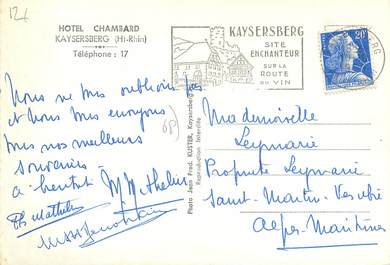 12€
HOTEL CHAMBARD
KAYSERSBERG (Ht-Rhin)
Téléphone : 17
KAYSERSBERG
SITE
ENCHANTEUR
SUR LA
ROUTE
DU VIN
20F
Nous ne vous oublions pas
et nous vous envoyons
nos meilleurs
souvenirs
a bientot M. Mathelin
Mathelin
68
Photo Jean Fred. KUSTER, Kaysersberg
Reproduction Interdite
Mademoiselle
Leymarie
Propriété Leymarie
Saint-Martin-Vésubie
Alpes-Maritimes